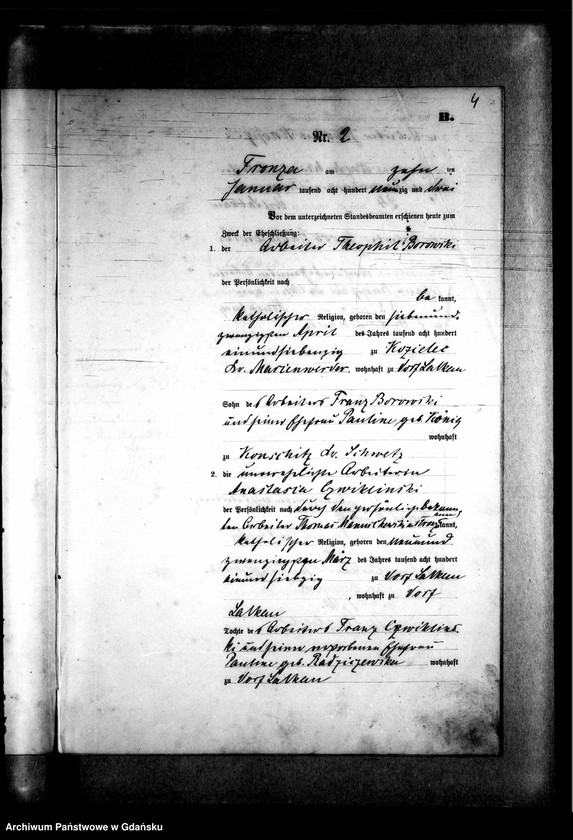 4
B.
Nr. 2
Fronza am zehn ten
Januar tausend acht hundert neunzig und drei
Vor dem unterzeichneten Standesbeamten erschienen heute zum
Zweck der Eheschließung:
1. der Arbeiter Theophil Borowski
der Persönlichkeit nach
be kannt,
katholischer Religion, geboren den siebenund-
zwanzigsten April des Jahres tausend acht hundert
einundsiebenzig zu Kozielec
Kr. Marienwerder, wohnhaft zu Dorf Lalkau
Sohn des Arbeiters Franz Borowski
und seiner Ehefrau Pauline geb. König
wohnhaft
zu Konschitz Kr. Schwetz
2. die unverehelichte Arbeiterin
Anastasia Czwiklinski
der Persönlichkeit nach durch den persönlich bekann-
ten Arbeiter Thomas kannt,
katholischer Religion, geboren den neunund
zwanzigsten März des Jahres tausend acht hundert
einund siebzig zu Dorf Lalkau
, wohnhaft zu Dorf
Lalkau
Tochter des Arbeiters Franz Czwiklins
ki und seiner verstorbenen Ehefrau
Pauline geb. Radziszewska wohnhaft
zu Dorf Lalkau
Archiwum Państwowe w Gdańsku